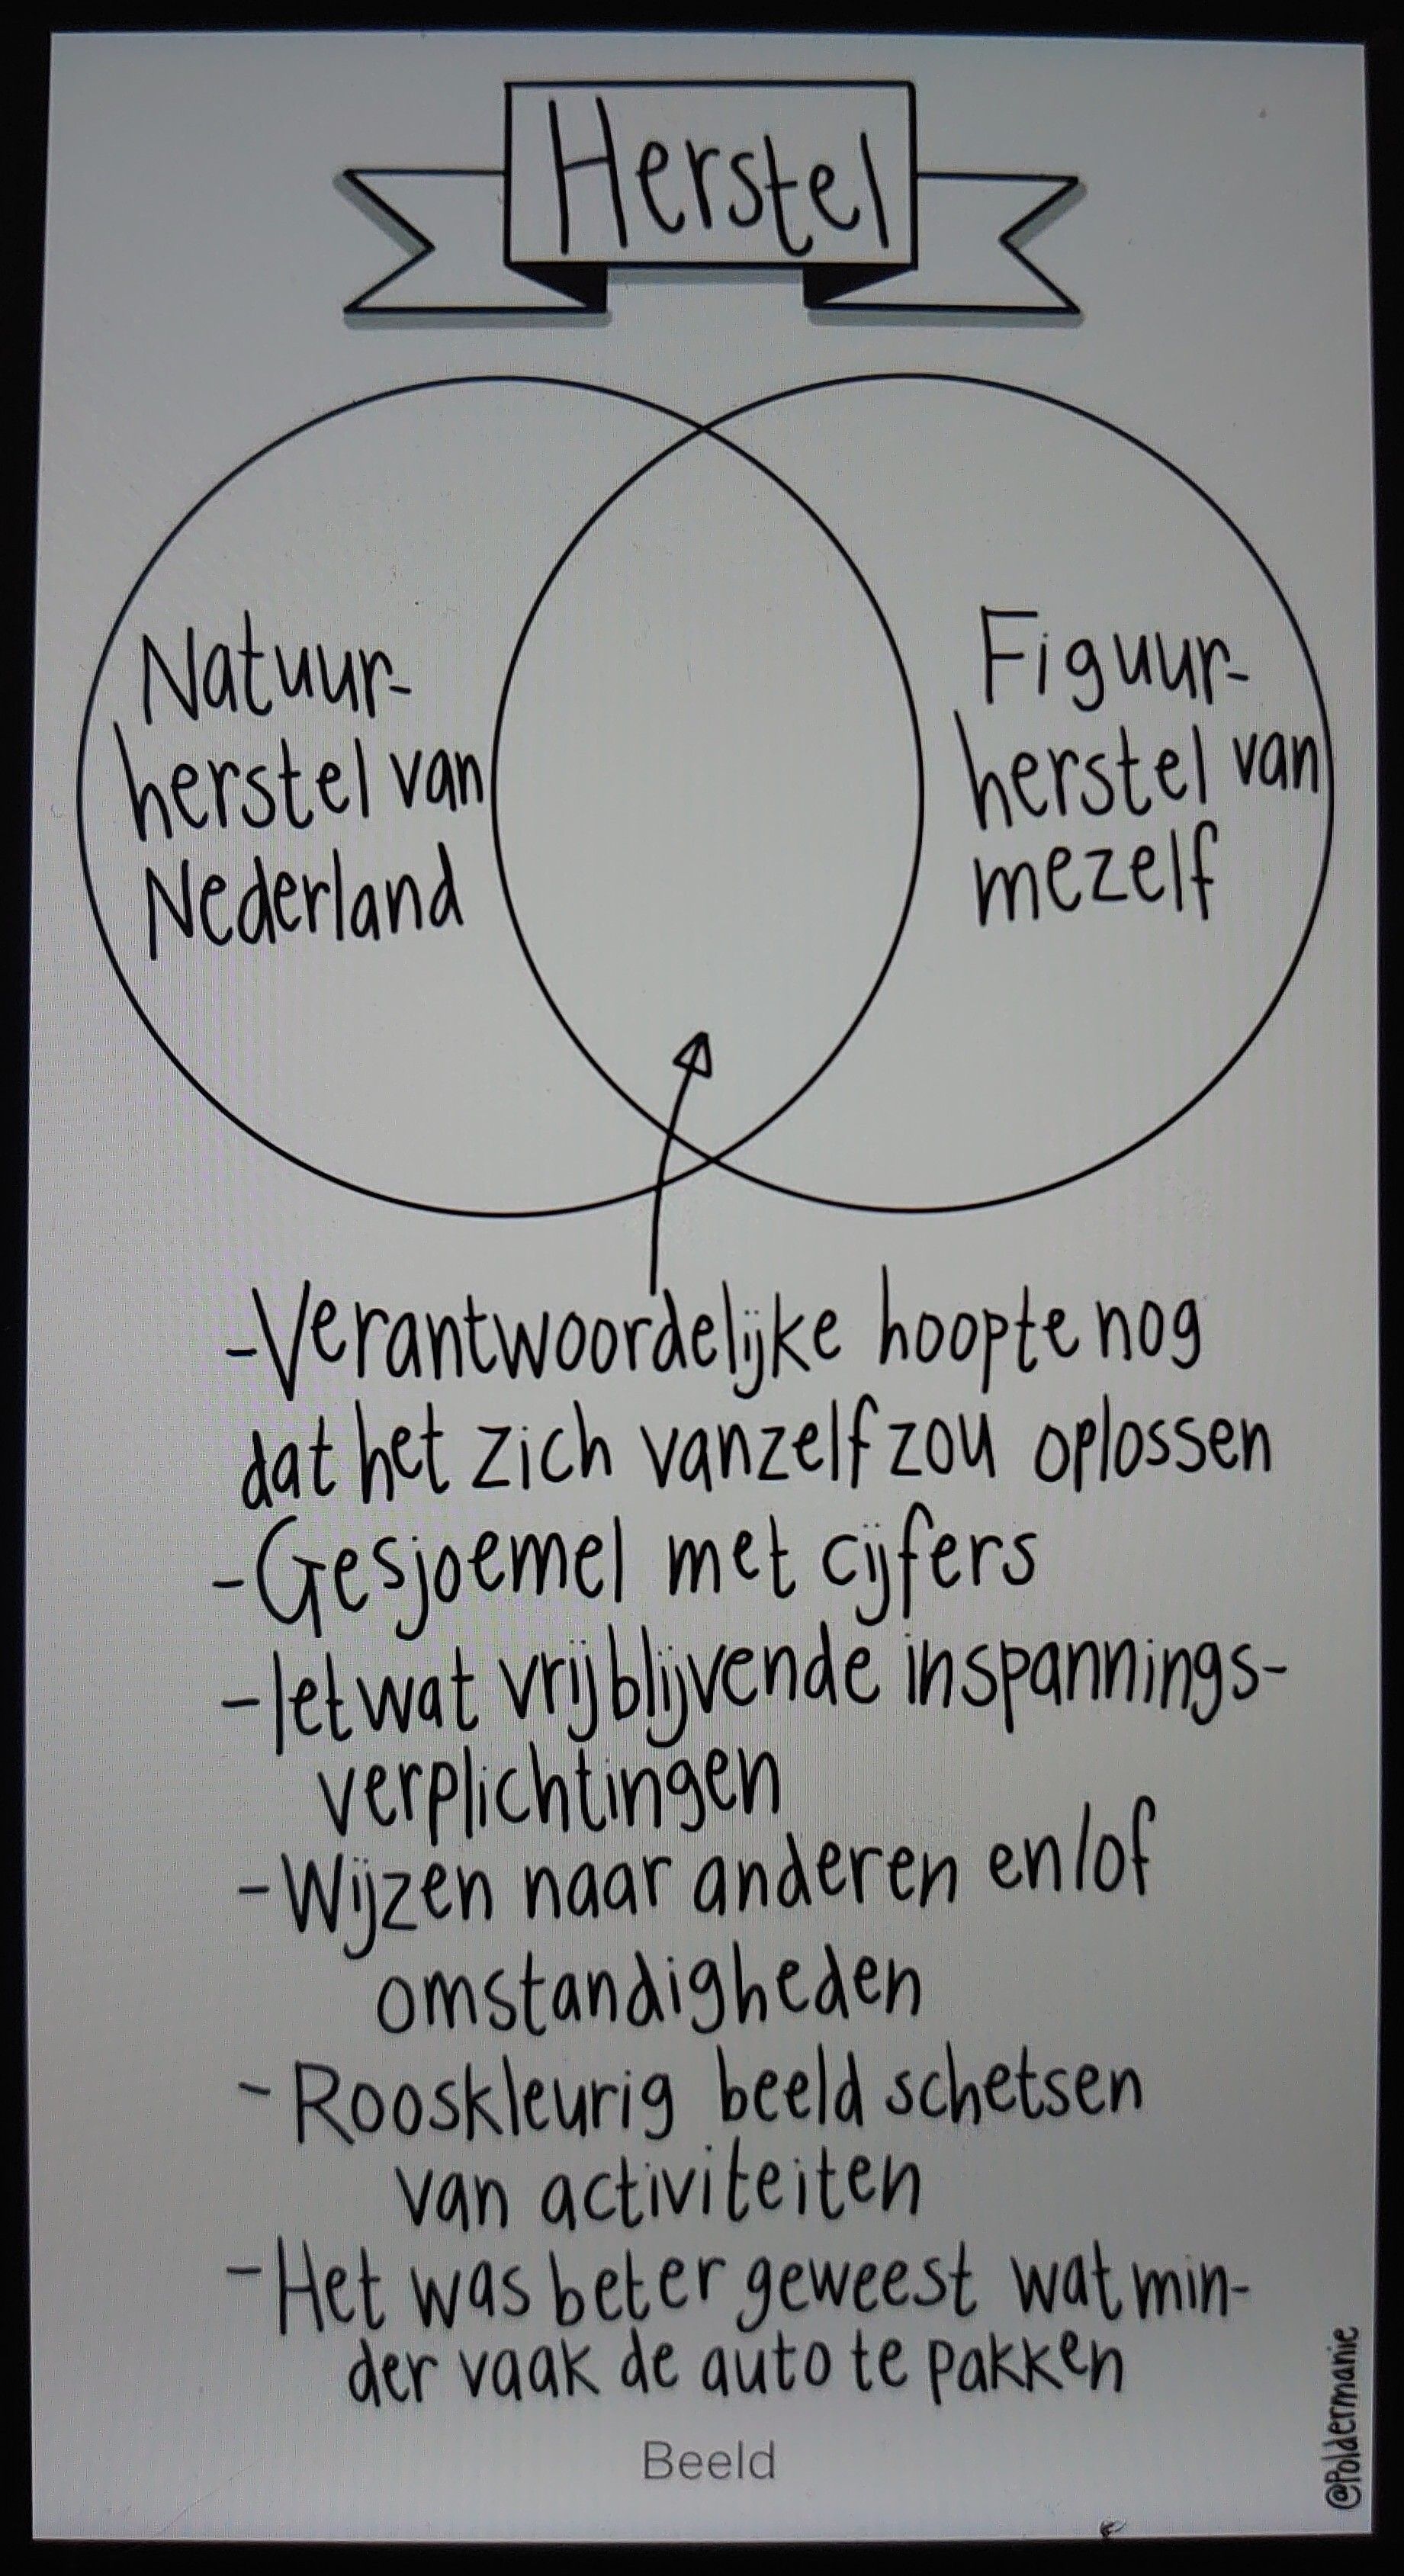 Herstel
Natuur-
herstel van
Nederland
Figuur-
herstel van
mezelf
-Verantwoordelijke hoopte nog
dat het zich vanzelf zou oplossen
-Gesjoemel met cijfers
-Ietwat vrijblijvende inspannings-
verplichtingen
-Wijzen naar anderen en/of
omstandigheden
-Rooskleurig beeld schetsen
van activiteiten
-Het was beter geweest wat min-
der vaak de auto te pakken
Beeld
@Poldermanie